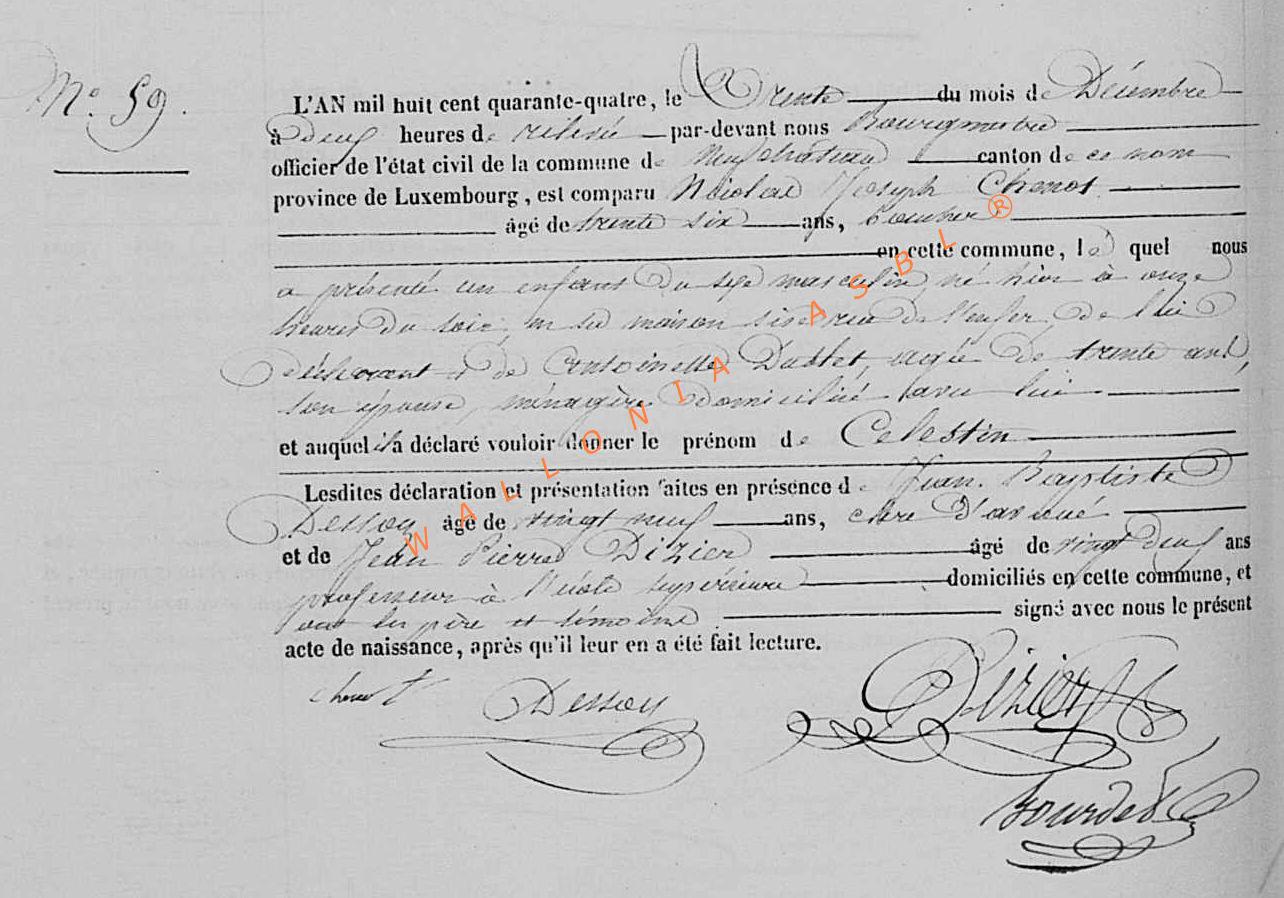 N° 59.
L'AN mil huit cent quarante-quatre, le Trente du mois de Décembre
à deux heures de relevée par-devant nous Bourgmestre
officier de l'état civil de la commune de Neufchateau canton de ce nom
province de Luxembourg, est comparu Nicolas Joseph Chenot
âgé de trente six ans, boucher
en cette commune, le quel nous
a présenté un enfant du sexe masculin, né hier à onze
heures du soir, en sa maison sise rue de l'enfer, de lui
déclarant et de Antoinette, agée de trente ans,
son épouse, ménagère domiciliée avec lui
et auquel il a déclaré vouloir donner le prénom de Celestin
Lesdites déclaration et présentation faites en présence de Jean Baptiste
Dessoy âgé de vingt neuf ans, clerc d'avoué
et de Jean Pierre Dizier âgé de vingt deux ans
professeur à l'école supérieure domiciliés en cette commune, et
ont les père et témoins signé avec nous le présent
acte de naissance, après qu'il leur en a été fait lecture.
Chenot Dessoy Dizier
WALLONIA ASBL ®